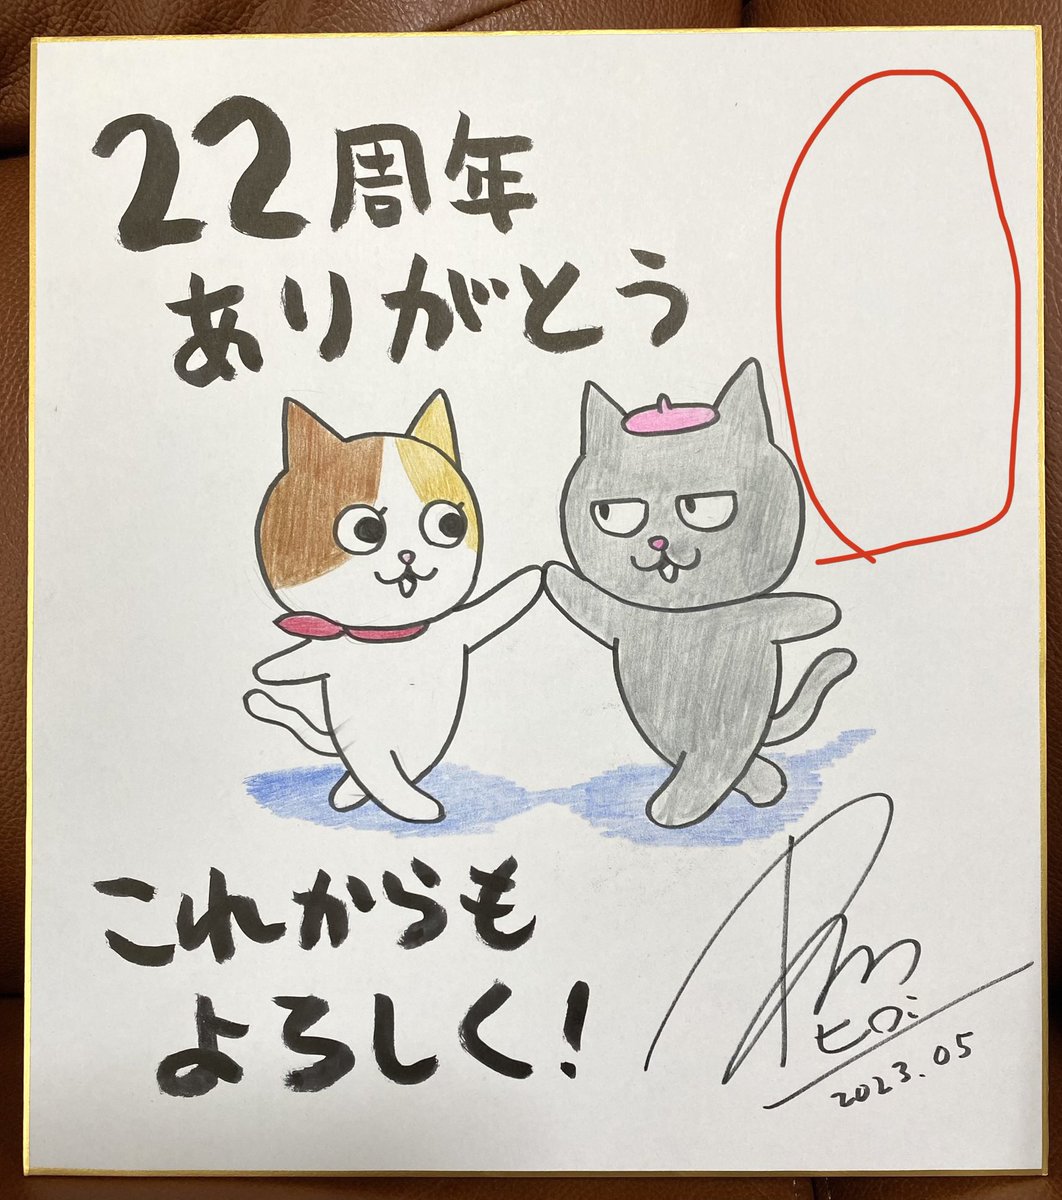 22周年
ありがとう
これからも
よろしく!
ヒロミ
2023.05